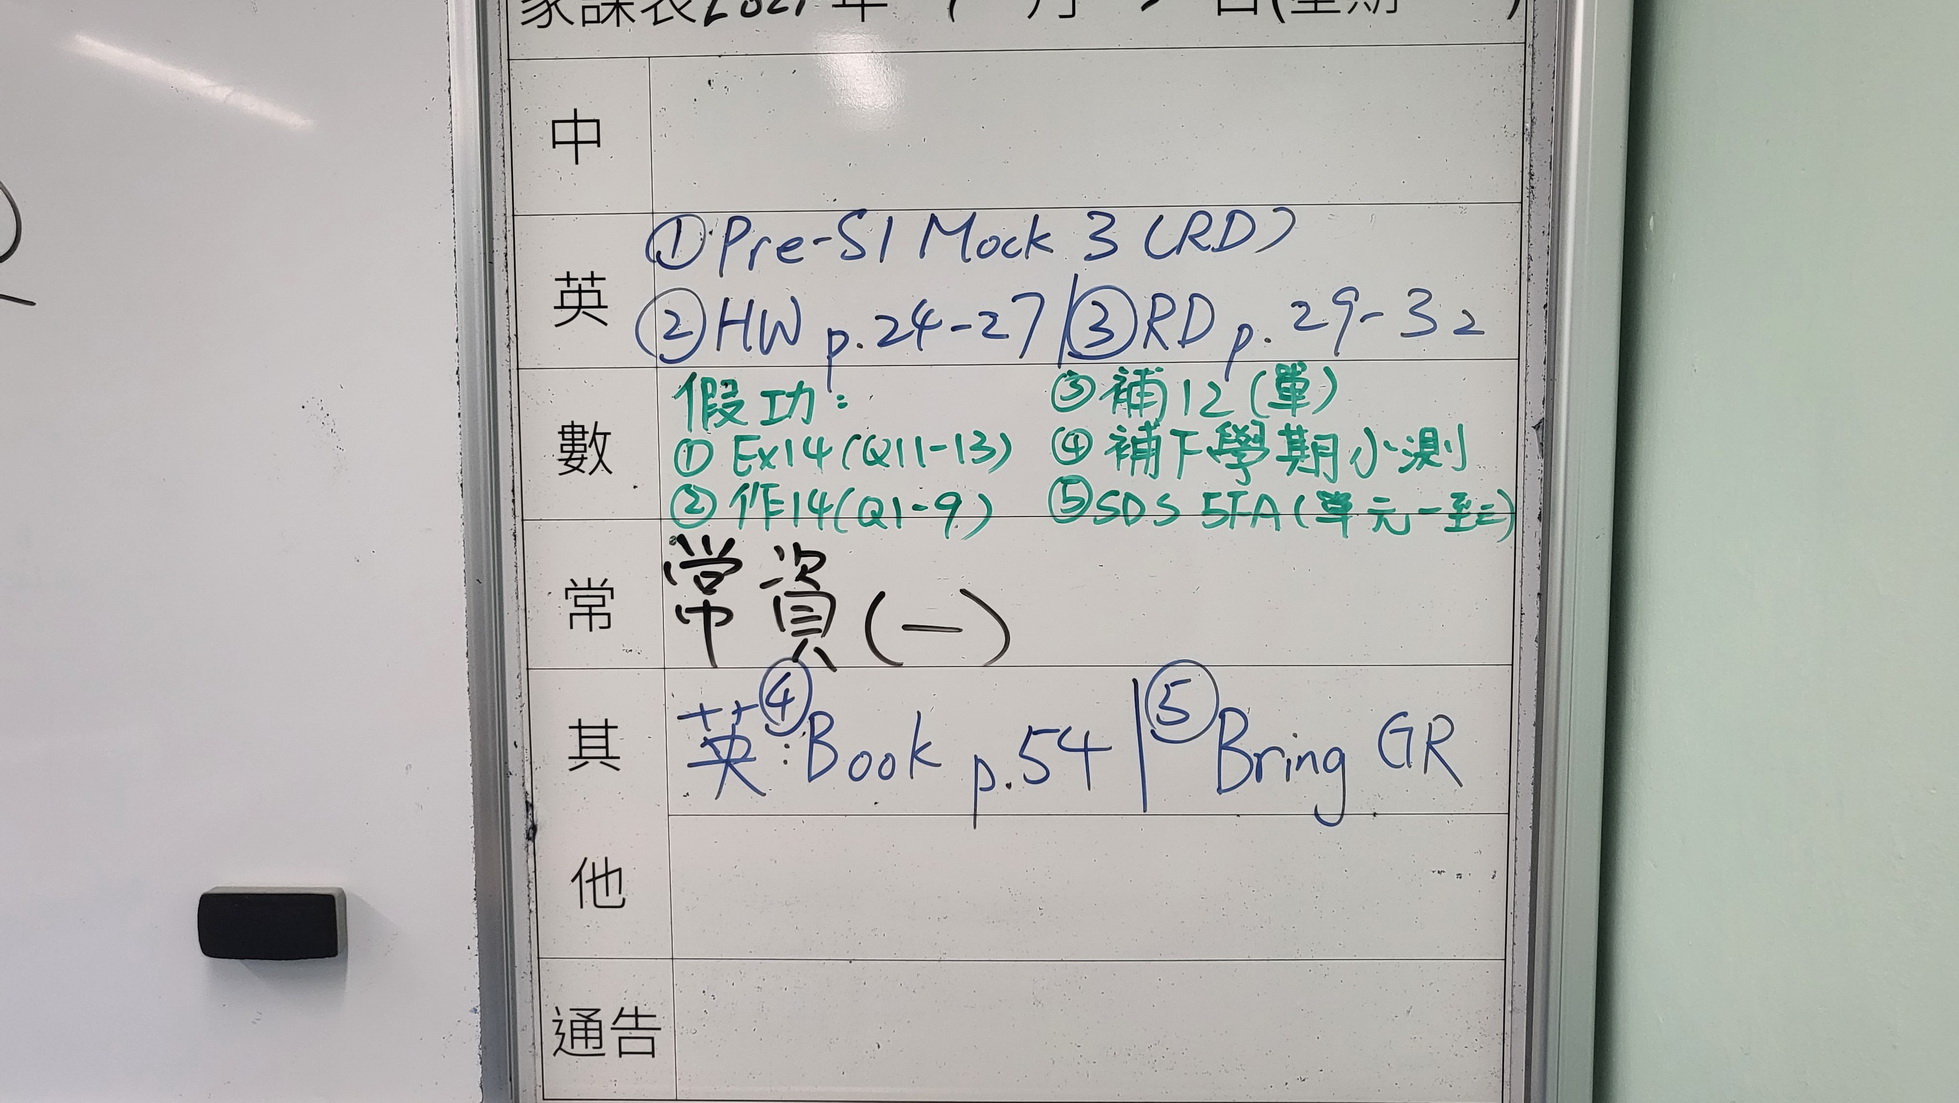 家課表 年 月 日(星期 )
中
英
①Pre-S1 Mock 3 (RD)
②HW p.24-27 | ③RD p.29-32
數
假功:
① Ex14(Q11-13)
② 作14(Q1-9)
③補12(單)
④補下學期小測
⑤SDS 5TA(單元一至三)
常
常資(一)
其他
英:④Book p.54 | ⑤Bring GR
通告